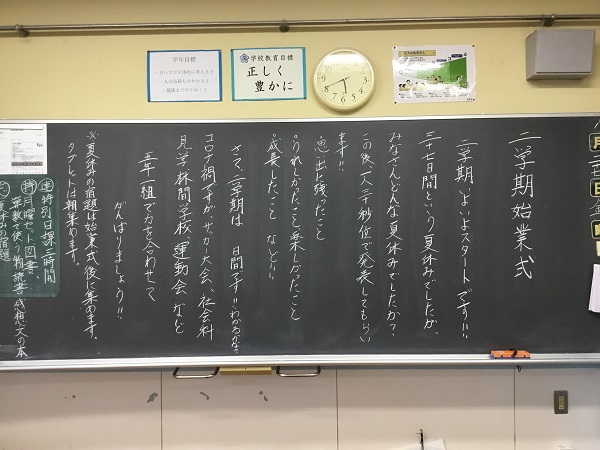 学年目標
学校教育目標
正しく
豊かに
二学期始業式
二学期、いよいよスタートです!!
三十七日間という夏休みでしたが、
みなさんどんな夏休みでしたか?
この後一人三十秒位で発表してもらい
ます!!
思い出に残ったこと
○うれしかったこと○楽しかったこと
○成長したこと などを!!
さて、二学期は 日間です!!わかるかな?
コロナ禍ですが、サッカー大会、社会科
見学、林間学校、運動会、など
五年一組で力を合わせて
がんばりましょう!!
※夏休みの宿題は始業式後に集めます。
タブレットは朝集めます。
連 特別日課三時間
持 月曜セット 図書
算数で使う物 読書感想文の本
夏休みの宿題